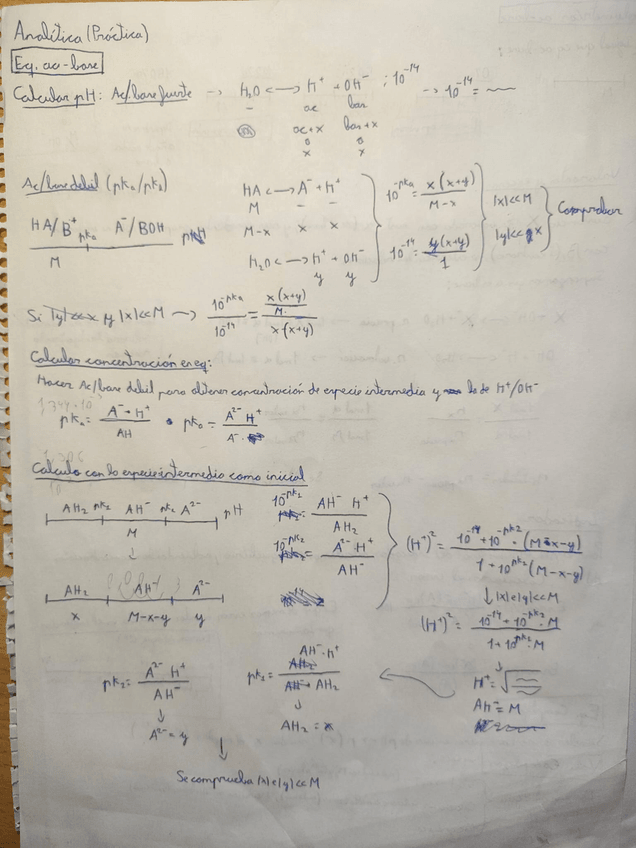 Analítica (Práctica)
Eq. ac-base
Calcular pH: Ac/base fuerte → H₂O ⟷ H⁺ + OH⁻ ; 10⁻¹⁴ → 10⁻¹⁴ =
- ac bas
ac+x bas+x
x x
Ac/base debil (pka/pkb)
HA ⟷ A⁻ + H⁺
M - -
M-x x x
H₂O ⟷ H⁺ + OH⁻
y y
10^-pka = x(x+y)/M-x
10⁻¹⁴ = y(x+y)/1
|x|<<M
|y|<<x
Comprobar
HA/B⁺ pka A⁻/BOH pH
M
Si |y|<<x y |x|<<M → 10^-pka/10⁻¹⁴ = x(x+y)/M / x(x+y)
Calcular concentración en eq:
Hacer Ac/base debil para obtener concentración de especie intermedia y lo de H⁺/OH⁻
pka = A⁻ · H⁺/AH • pka = A²⁻ H⁺/A⁻
Calculo con la especie intermedia como inicial
AH₂ pk₂ AH⁻ pk₂ A²⁻ pH
M
↓
AH₂ AH⁻ A²⁻
x M-x-y y
10^-pk₂ = AH⁻ H⁺/AH₂
10^-pk₂ = A²⁻ H⁺/AH⁻
(H⁺)² = 10⁻¹⁴ + 10^-pk₂ · (M-x-y)/1 + 10^pk₂ (M-x-y)
↓ |x| e |y| << M
(H⁺)² = 10⁻¹⁴ + 10^-pk₂ · M/1 + 10^pk₂ · M
↓
H⁺ = √
AH⁻ = M
pk₂ = A²⁻ H⁺/AH⁻
↓
A²⁻ = y
pk₂ = AH⁻ · H⁺/AH₂
↓
AH₂ = x
↓
Se comprueba |x| e |y| << M